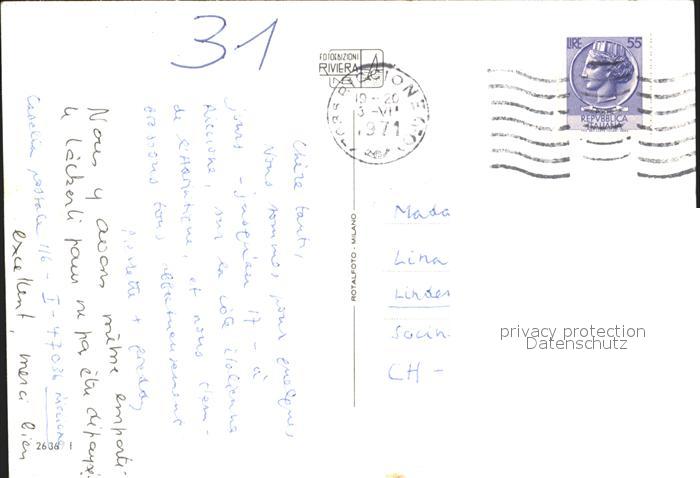 31
FOTOEDIZIONI
RIVIERA
RICCIONE
19-20
3-VII
1971
LIRE 55
REPVBBLICA
ITALIANA
Chère tanti,
Nous sommes pour quelques
jours - jusqu'au 17 - à
Riccione, sur la côte italienne
de l'Adriatique, et nous t'em-
brassons tous affectueusement
Nous y avons même emporté
le Läckerli pour ne pas être dépaysé
excellent, merci bien
Casella postale 116 - I - 47036 Riccione
ROTALFOTO - MILANO
Mada
Lina
Linder
Socin
CH -
privacy protection
Datenschutz
2636 I